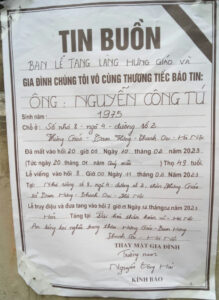 TIN BUỒN
BAN LỄ TANG LÀNG HƯNG GIÁO VÀ
GIA ĐÌNH CHÚNG TÔI VÔ CÙNG THƯƠNG TIẾC BÁO TIN:
ÔNG: NGUYỄN CÔNG TÚ
Sinh năm: 1975
Chỗ ở: Số nhà 8 - ngõ 4 - đường số 2
Hưng Giáo - Tam Hưng - Thanh Oai - Hà Nội
Đã mất vào hồi 20 giờ 05 Ngày 10 tháng 02 năm 2023
(Tức ngày 20 tháng 01 năm Quý Mão) Thọ 49 tuổi
Lễ viếng hồi 8 giờ Ngày 11 tháng 02 năm 2023
Tại: Nhà số 8 - ngõ 4 - đường số 2 - thôn Hưng Giáo
xã Tam Hưng - Thanh Oai - Hà Nội
Lễ truy điệu và đưa tang vào hồi giờ Ngày 12 tháng 02 năm 2023
Hỏa Táng Tại: Đài hóa thân hoàn vũ - Hà Nội
An táng tại nghĩa trang thôn Hưng Giáo - Tam Hưng
Thanh Oai - Hà Nội
THAY MẶT GIA ĐÌNH
Trưởng nam
Nguyễn
KÍNH BÁO